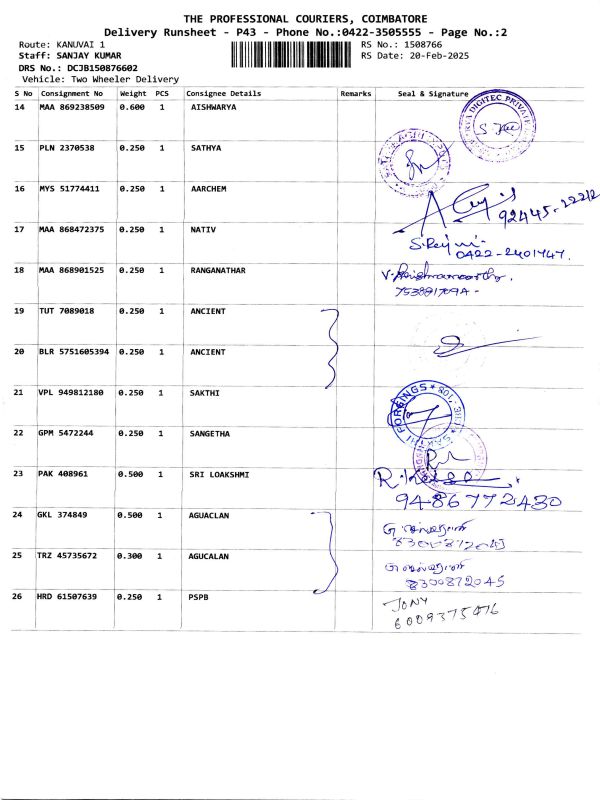 THE PROFESSIONAL COURIERS, COIMBATORE
Delivery Runsheet - P43 - Phone No.:0422-3505555 - Page No.:2
Route: KANUVAI 1
RS No.: 1508766
Staff: SANJAY KUMAR
RS Date: 20-Feb-2025
DRS No.: DCJB150876602
Vehicle: Two Wheeler Delivery
S No Consignment No Weight PCS Consignee Details Remarks Seal & Signature
14 MAA 869238509 0.600 1 AISHWARYA
15 PLN 2370538 0.250 1 SATHYA
16 MYS 51774411 0.250 1 AARCHEM
92445-22212
17 MAA 868472375 0.250 1 NATIV
0422-2401747.
18 MAA 868901525 0.250 1 RANGANATHAR
19 TUT 7089018 0.250 1 ANCIENT
20 BLR 5751605394 0.250 1 ANCIENT
21 VPL 949812180 0.250 1 SAKTHI
22 GPM 5472244 0.250 1 SANGETHA
23 PAK 408961 0.500 1 SRI LOAKSHMI
9486772430
24 GKL 374849 0.500 1 AGUACLAN
25 TRZ 45735672 0.300 1 AGUCALAN
8300872045
26 HRD 61507639 0.250 1 PSPB
JONY
6009375476